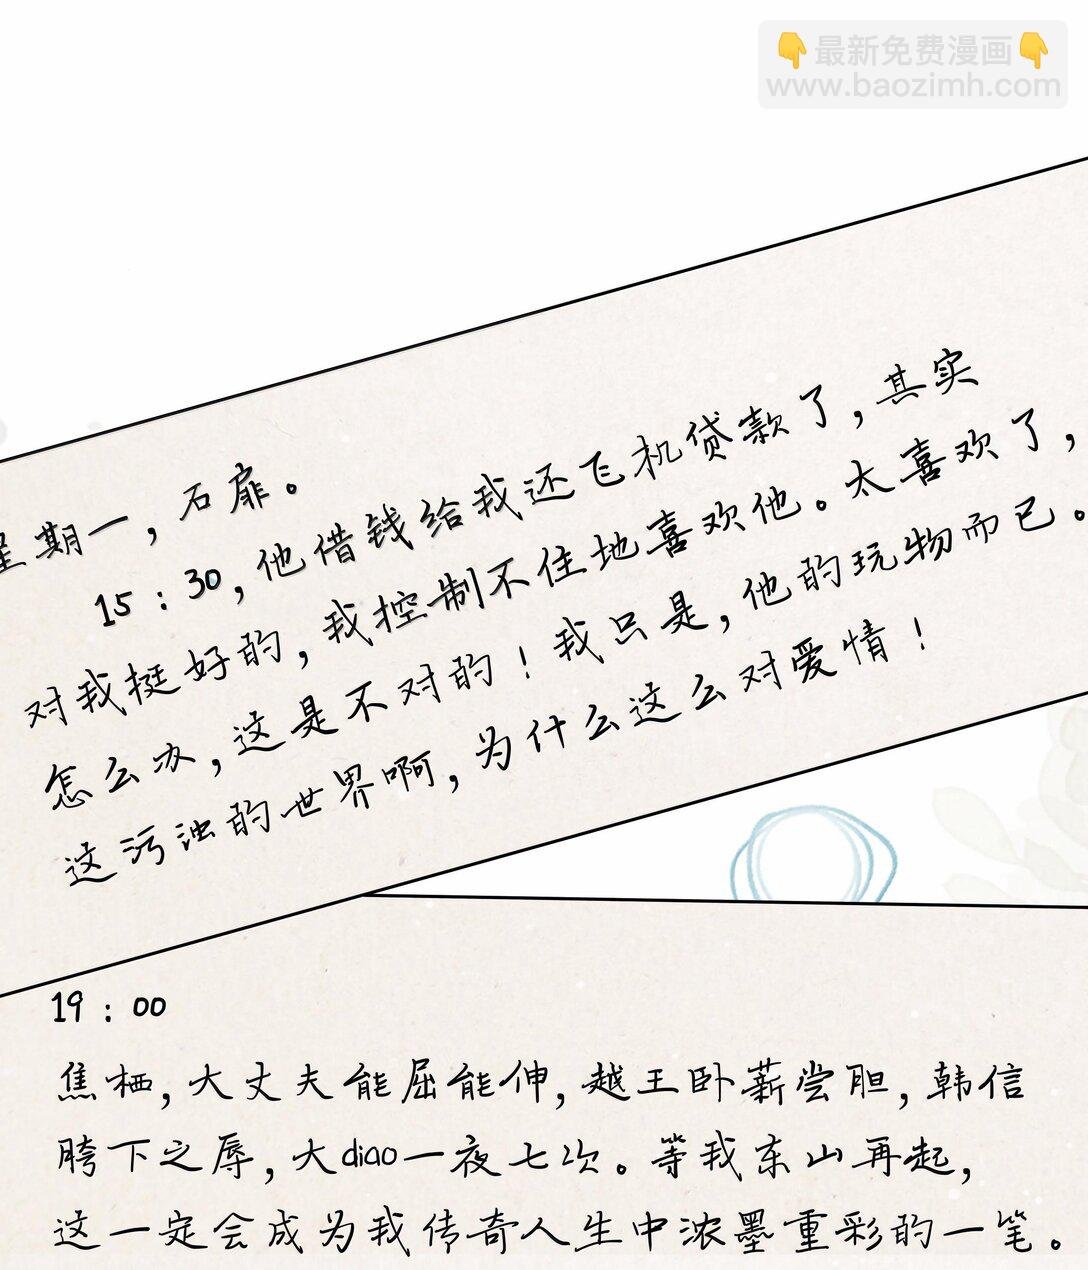 👇最新免费漫画👇
www.baozimh.com
星期一，石扉。
15：30，他借钱给我还飞机贷款了，其实
对我挺好的，我控制不住地喜欢他。太喜欢了，
怎么办，这是不对的！我只是，他的玩物而已。
这污浊的世界啊，为什么这么对爱情！
19：00
焦栖，大丈夫能屈能伸，越王卧薪尝胆，韩信
胯下之辱，大diao一夜七次。等我东山再起，
这一定会成为我传奇人生中浓墨重彩的一笔。